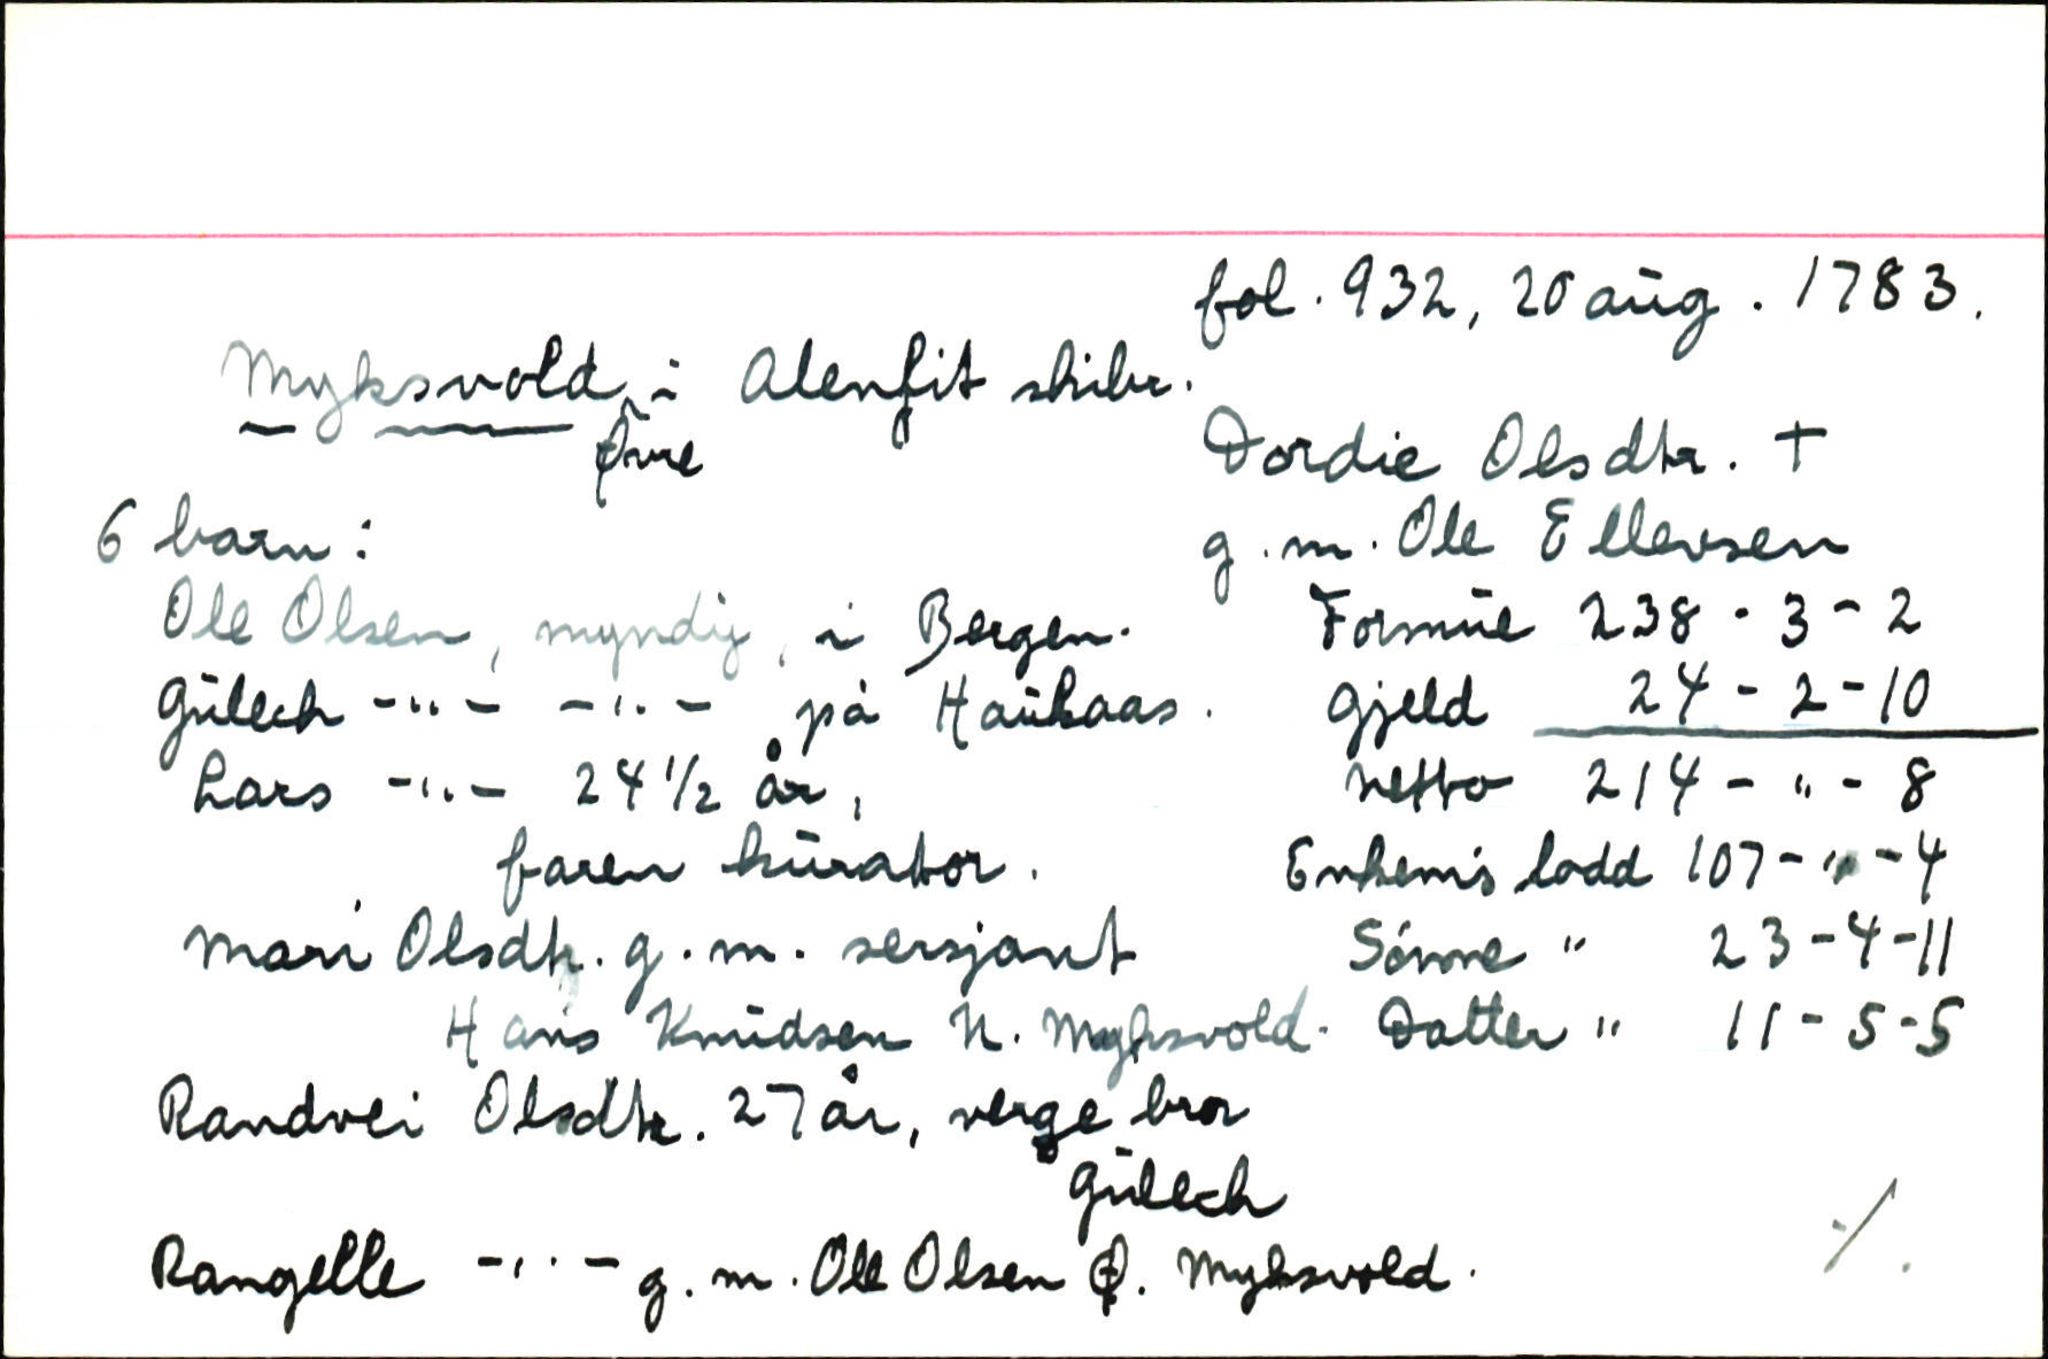 fol. 932, 20 aug. 1783.
Myksvold, i Alenfit skibr.
Øvre
Dordie Olsdtr. +
6 barn:
g.m. Ole Ellevsen
Ole Olsen, myndig, i Bergen. Formue 238 - 3 - 2
Gulech -"- -"- på Haukaas. Gjeld 24 - 2 - 10
Lars -"- 24 1/2 år, Netto 214 - " - 8
faren kurator. Enkem's lodd 107 - " - 4
Mari Olsdtr. g.m. sersjant Sønne " 23 - 4 - 11
Hans Knudsen N. Myksvold. Datter " 11 - 5 - 5
Randvei Olsdtr. 27 år, verge bror
Gulech
Rangelle -"- g.m. Ole Olsen Ø. Myksvold. ./.